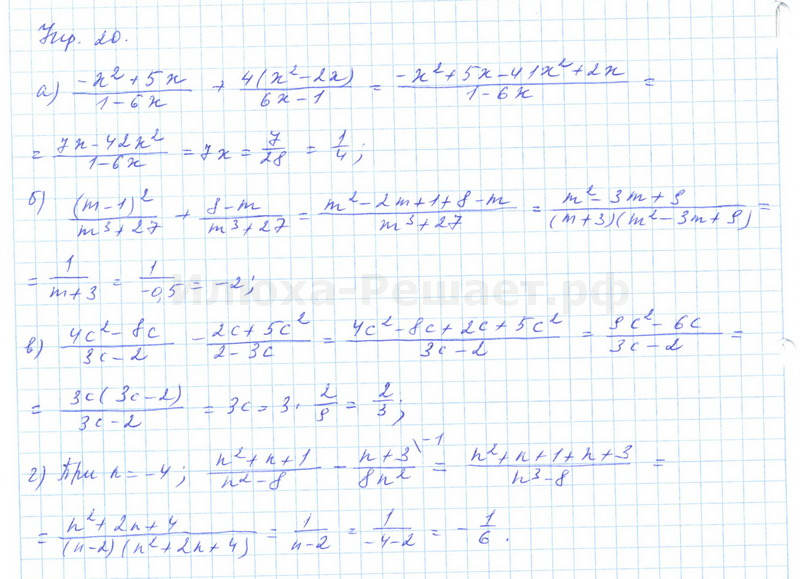 Упр. 20.
а) (-x² + 5x)/(1 - 6x) + 4(x² - 2x)/(6x - 1) = (-x² + 5x - 41x² + 2x)/(1 - 6x) =
= (7x - 42x²)/(1 - 6x) = 7x = 7/28 = 1/4;
б) (m - 1)²/(m³ + 27) + (8 - m)/(m³ + 27) = (m² - 2m + 1 + 8 - m)/(m³ + 27) = (m² - 3m + 9)/((m + 3)(m² - 3m + 9)) =
= 1/(m + 3) = 1/(-0,5) = -2;
Илюха-Решает.рф
в) (4c² - 8c)/(3c - 2) - (2c + 5c²)/(2 - 3c) = (4c² - 8c + 2c + 5c²)/(3c - 2) = (9c² - 6c)/(3c - 2) =
= 3c(3c - 2)/(3c - 2) = 3c = 3 · 2/9 = 2/3;
г) При n = -4; (n² + n + 1)/(n² - 8) - (n + 3)/(8n² \-1 = (n² + n + 1 + n + 3)/(n³ - 8) =
= (n² + 2n + 4)/((n - 2)(n² + 2n + 4)) = 1/(n - 2) = 1/(-4 - 2) = -1/6.